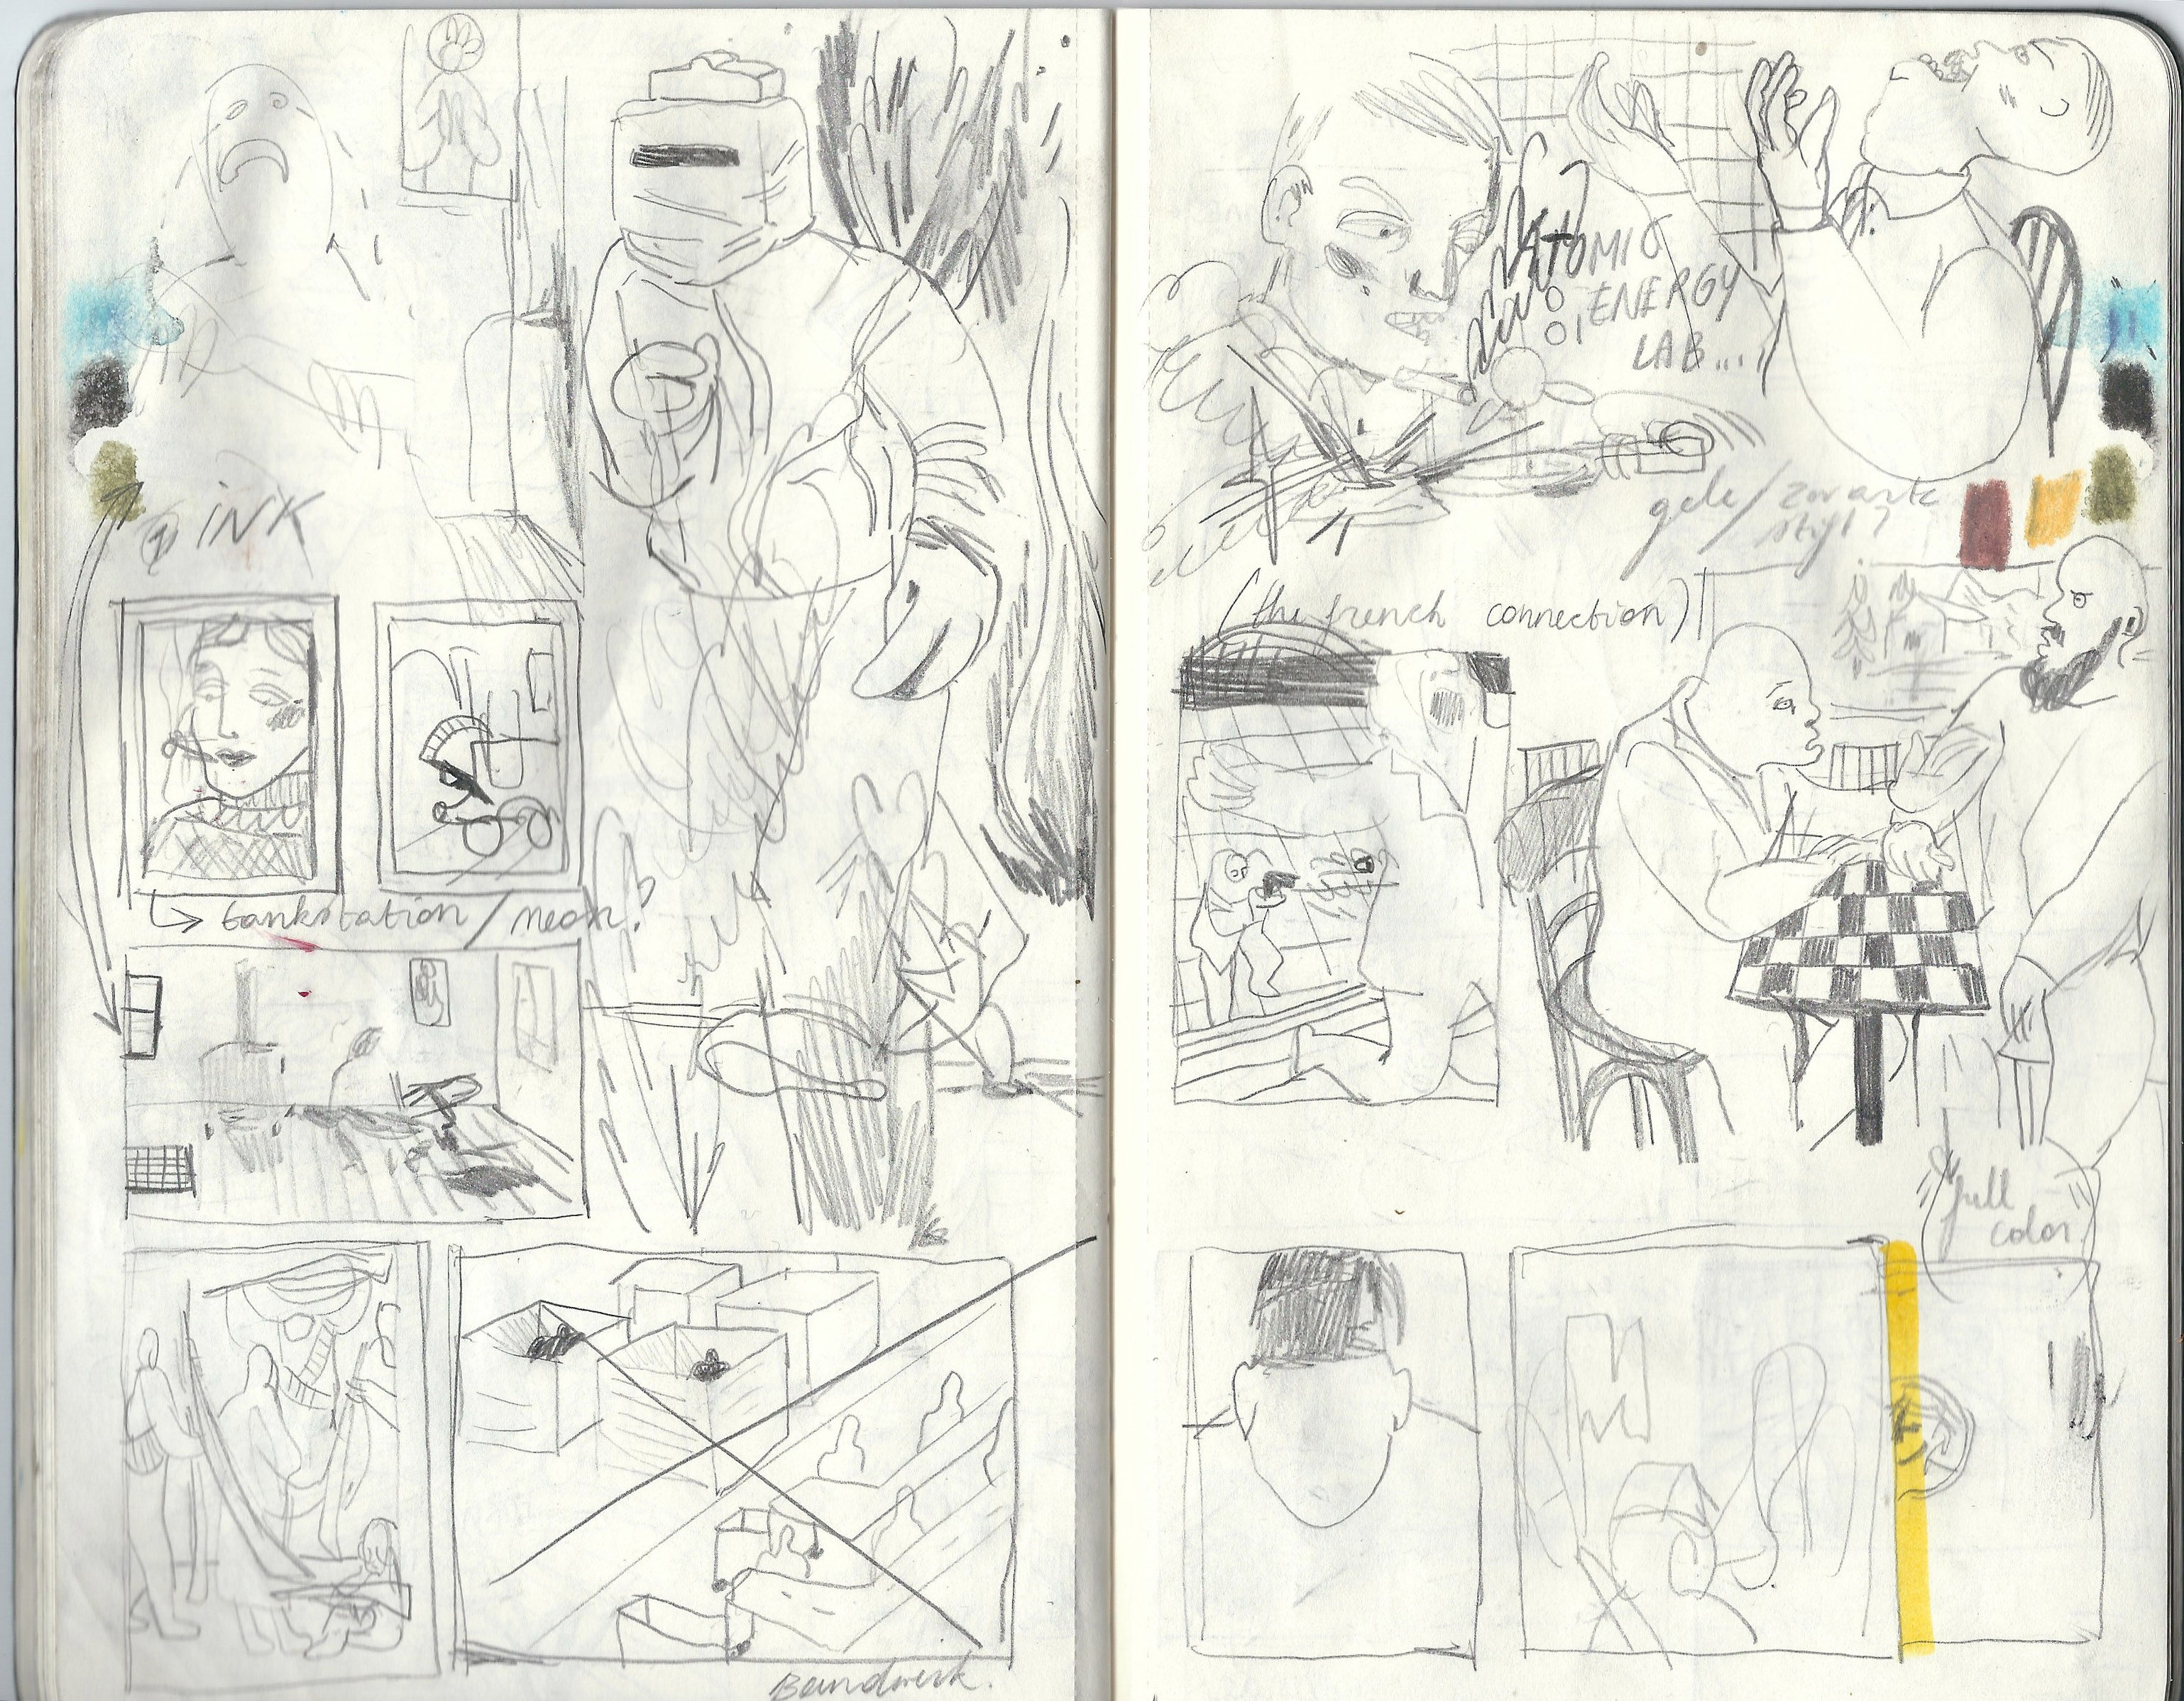 + iNK
tankstation / neon?
Bandwerk.
ATOMIC
ENERGY
LAB...
gele / zwarte
stijl?
(the french connection)
full
color.